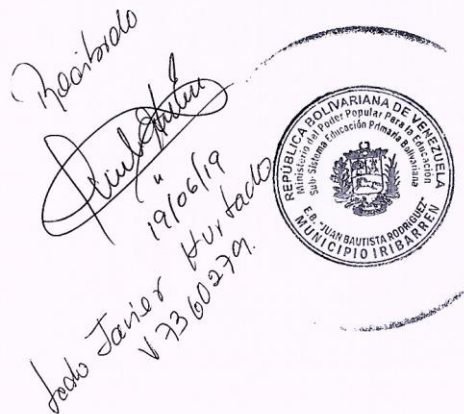 Recibido
19/06/19
Javier Hurtado
V7360279.
REPÚBLICA BOLIVARIANA DE VENEZUELA
Ministerio del Poder Popular Para la Educación
Sub-Sistema Educación Primaria Bolivariana
E.B. "JUAN BAUTISTA RODRIGUEZ"
MUNICIPIO IRIBARREN